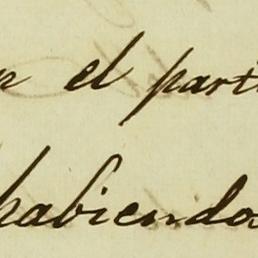 el part
habiendo